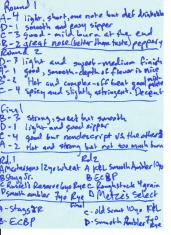 Round 1
A-4 light, short, one note but def drinkable
D-1 smooth and easy sipper
C-3 good - mild burn at the end
B-2 great nose (better than taste) peppery
Round 2
D-3 light and medium finish
A-1 good, smooth-depth of flavor is nice
Hot and complex-off beat good
C-4 spicy and slightly astringent. Decent
Final
B-3 strong, sweet but smooth
D-1 light and good sipper
C-4 good but nondescript vs the others
A-2 hot and strong but not too much burn
Rd. 1
Rd 2
A Mastersons 12yo wheat
A KBL Smooth Ambler 10yo
B Stagg Jr.
B ECBP
C Russell's Reserve 6yo Rye
C Roughstock 4 grain
D Smooth ambler 7yo Rye
D Metze's Select
Final
A-Stagg JR
C-old Scout 10yo
B-ECBP
D-Smooth Ambler 7yo
Rye